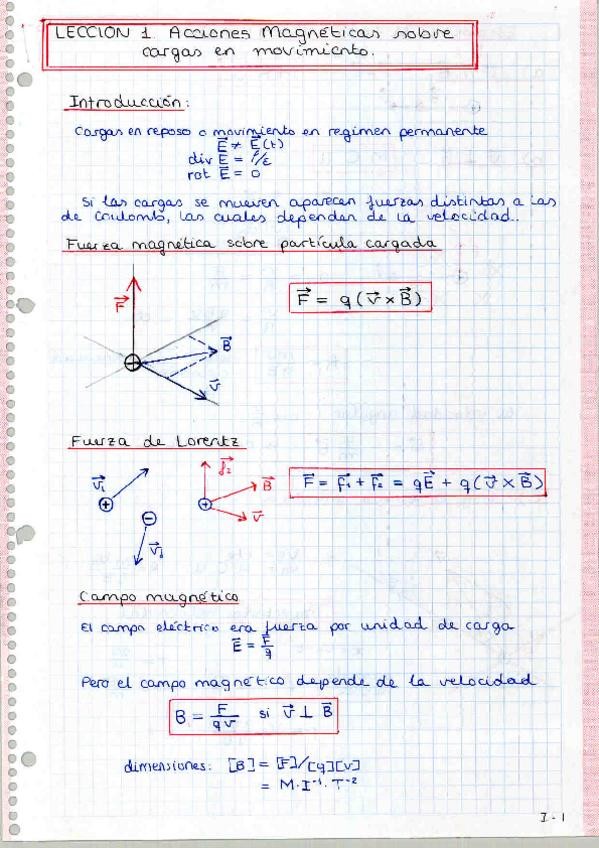 LECCION 1. Acciones Magnéticas sobre
cargas en movimiento.
Introducción:
Cargas en reposo o movimiento en regimen permanente
E⃗ ≠ E⃗(t)
div E⃗ = ρ/ε
rot E⃗ = 0
Si las cargas se mueven aparecen fuerzas distintas a las
de Coulomb, las cuales dependen de la velocidad.
Fuerza magnética sobre partícula cargada
F⃗
F⃗ = q(v⃗ × B⃗)
B⃗
v⃗
Fuerza de Lorentz
v⃗₁
f⃗₂
B⃗
F⃗ = f⃗₁ + f⃗₂ = qE⃗ + q(v⃗ × B⃗)
v⃗
Campo magnético
El campo eléctrico era fuerza por unidad de carga
E⃗ = F⃗/q
Pero el campo magnético depende de la velocidad
B = F/qv si v⃗ ⊥ B⃗
dimensiones: [B] = [F]/[q][v]
= M·I⁻¹·T⁻²
I-1